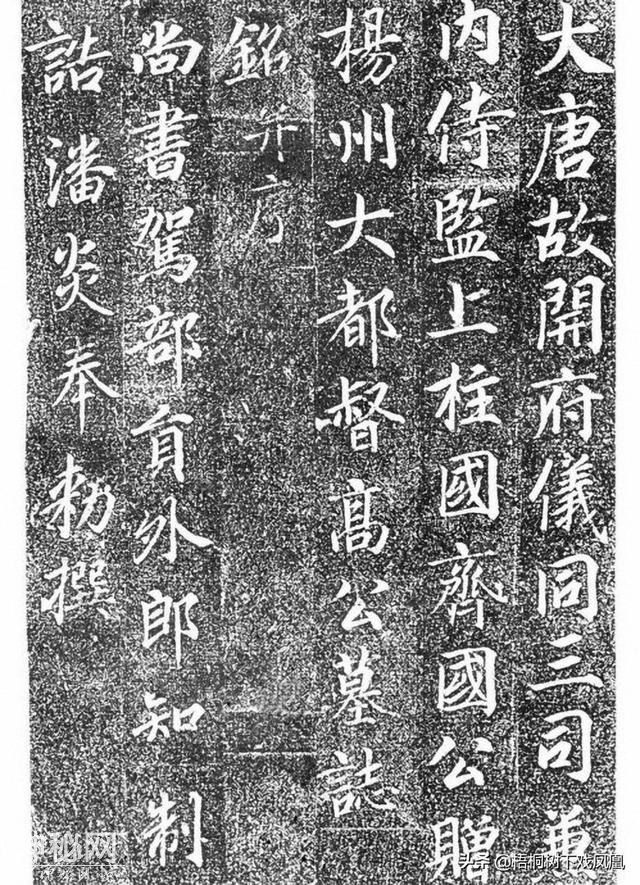 大唐故開府儀同三司兼
内侍監上柱國齊國公贈
楊州大都督高公墓誌
銘并序
尚書駕部貟外郎知制
誥潘炎奉勑撰
头条@梧桐树下戏凤凰